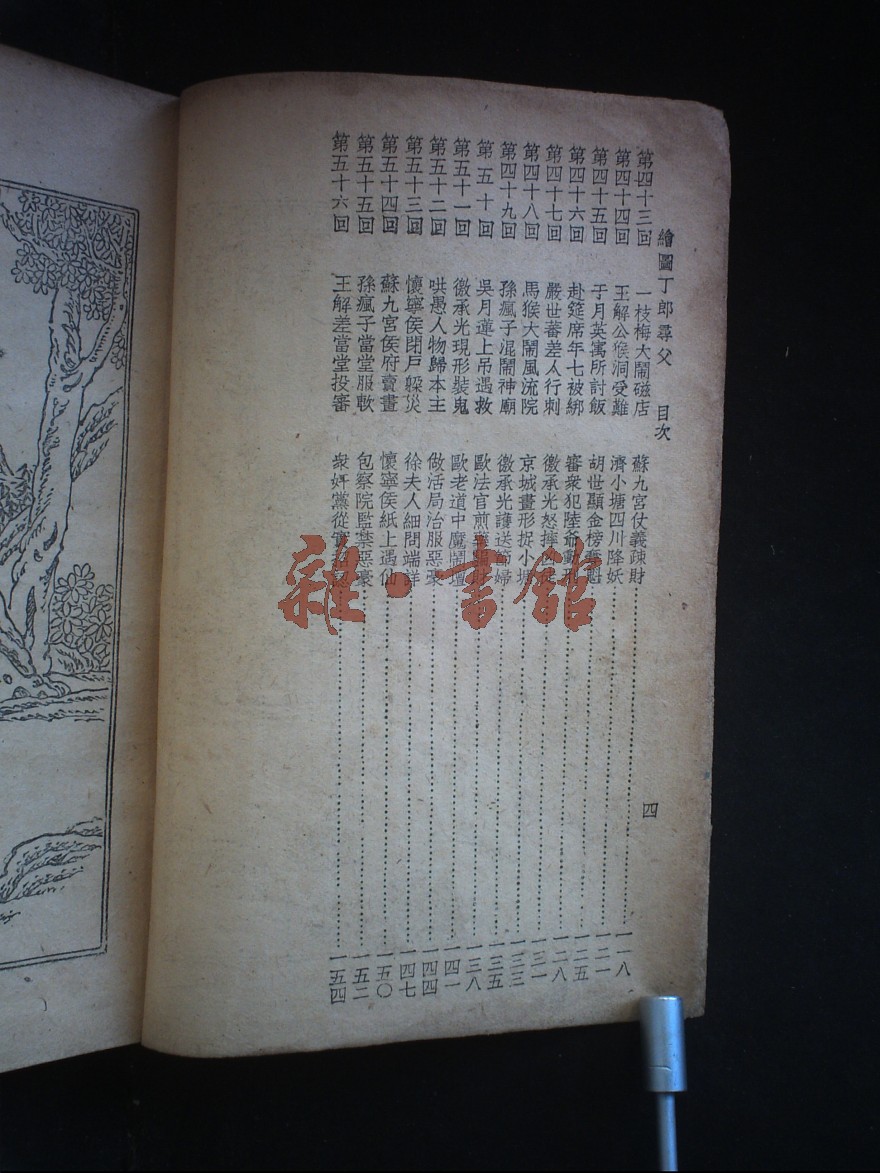 繪圖丁郎尋父 目次 四
第四十三回 一枝梅大鬧磁店 蘇九宮仗義疎財 一一八
第四十四回 王解公猴洞受難 濟小塘四川降妖 一二一
第四十五回 于月英寓所討飯 胡世顯金榜奪魁 一二五
第四十六回 赴筵席年七被綁 審衆犯陸爺動刑 一二八
第四十七回 嚴世蕃差人行刺 徽承光怒摔凶徒 一三一
第四十八回 馬猴大鬧風流院 京城畫形捉小塘 一三三
第四十九回 孫瘋子混鬧神廟 徽承光護送節婦 一三五
第五十回 吳月蓮上吊遇救 歐法官煎藥騙財 一三八
第五十一回 徽承光現形裝鬼 歐老道中魔鬧壇 一四一
第五十二回 哄愚人物歸本主 做活局治服惡豪 一四四
第五十三回 懷寧侯閉戶躲災 徐夫人細問端詳 一四七
第五十四回 蘇九宮侯府賣畫 懷寧侯紙上遇仙 一五〇
第五十五回 孫瘋子當堂服軟 包察院監禁惡豪 一五二
第五十六回 王解差當堂投審 衆奸黨從實招 一五四
雜·書館